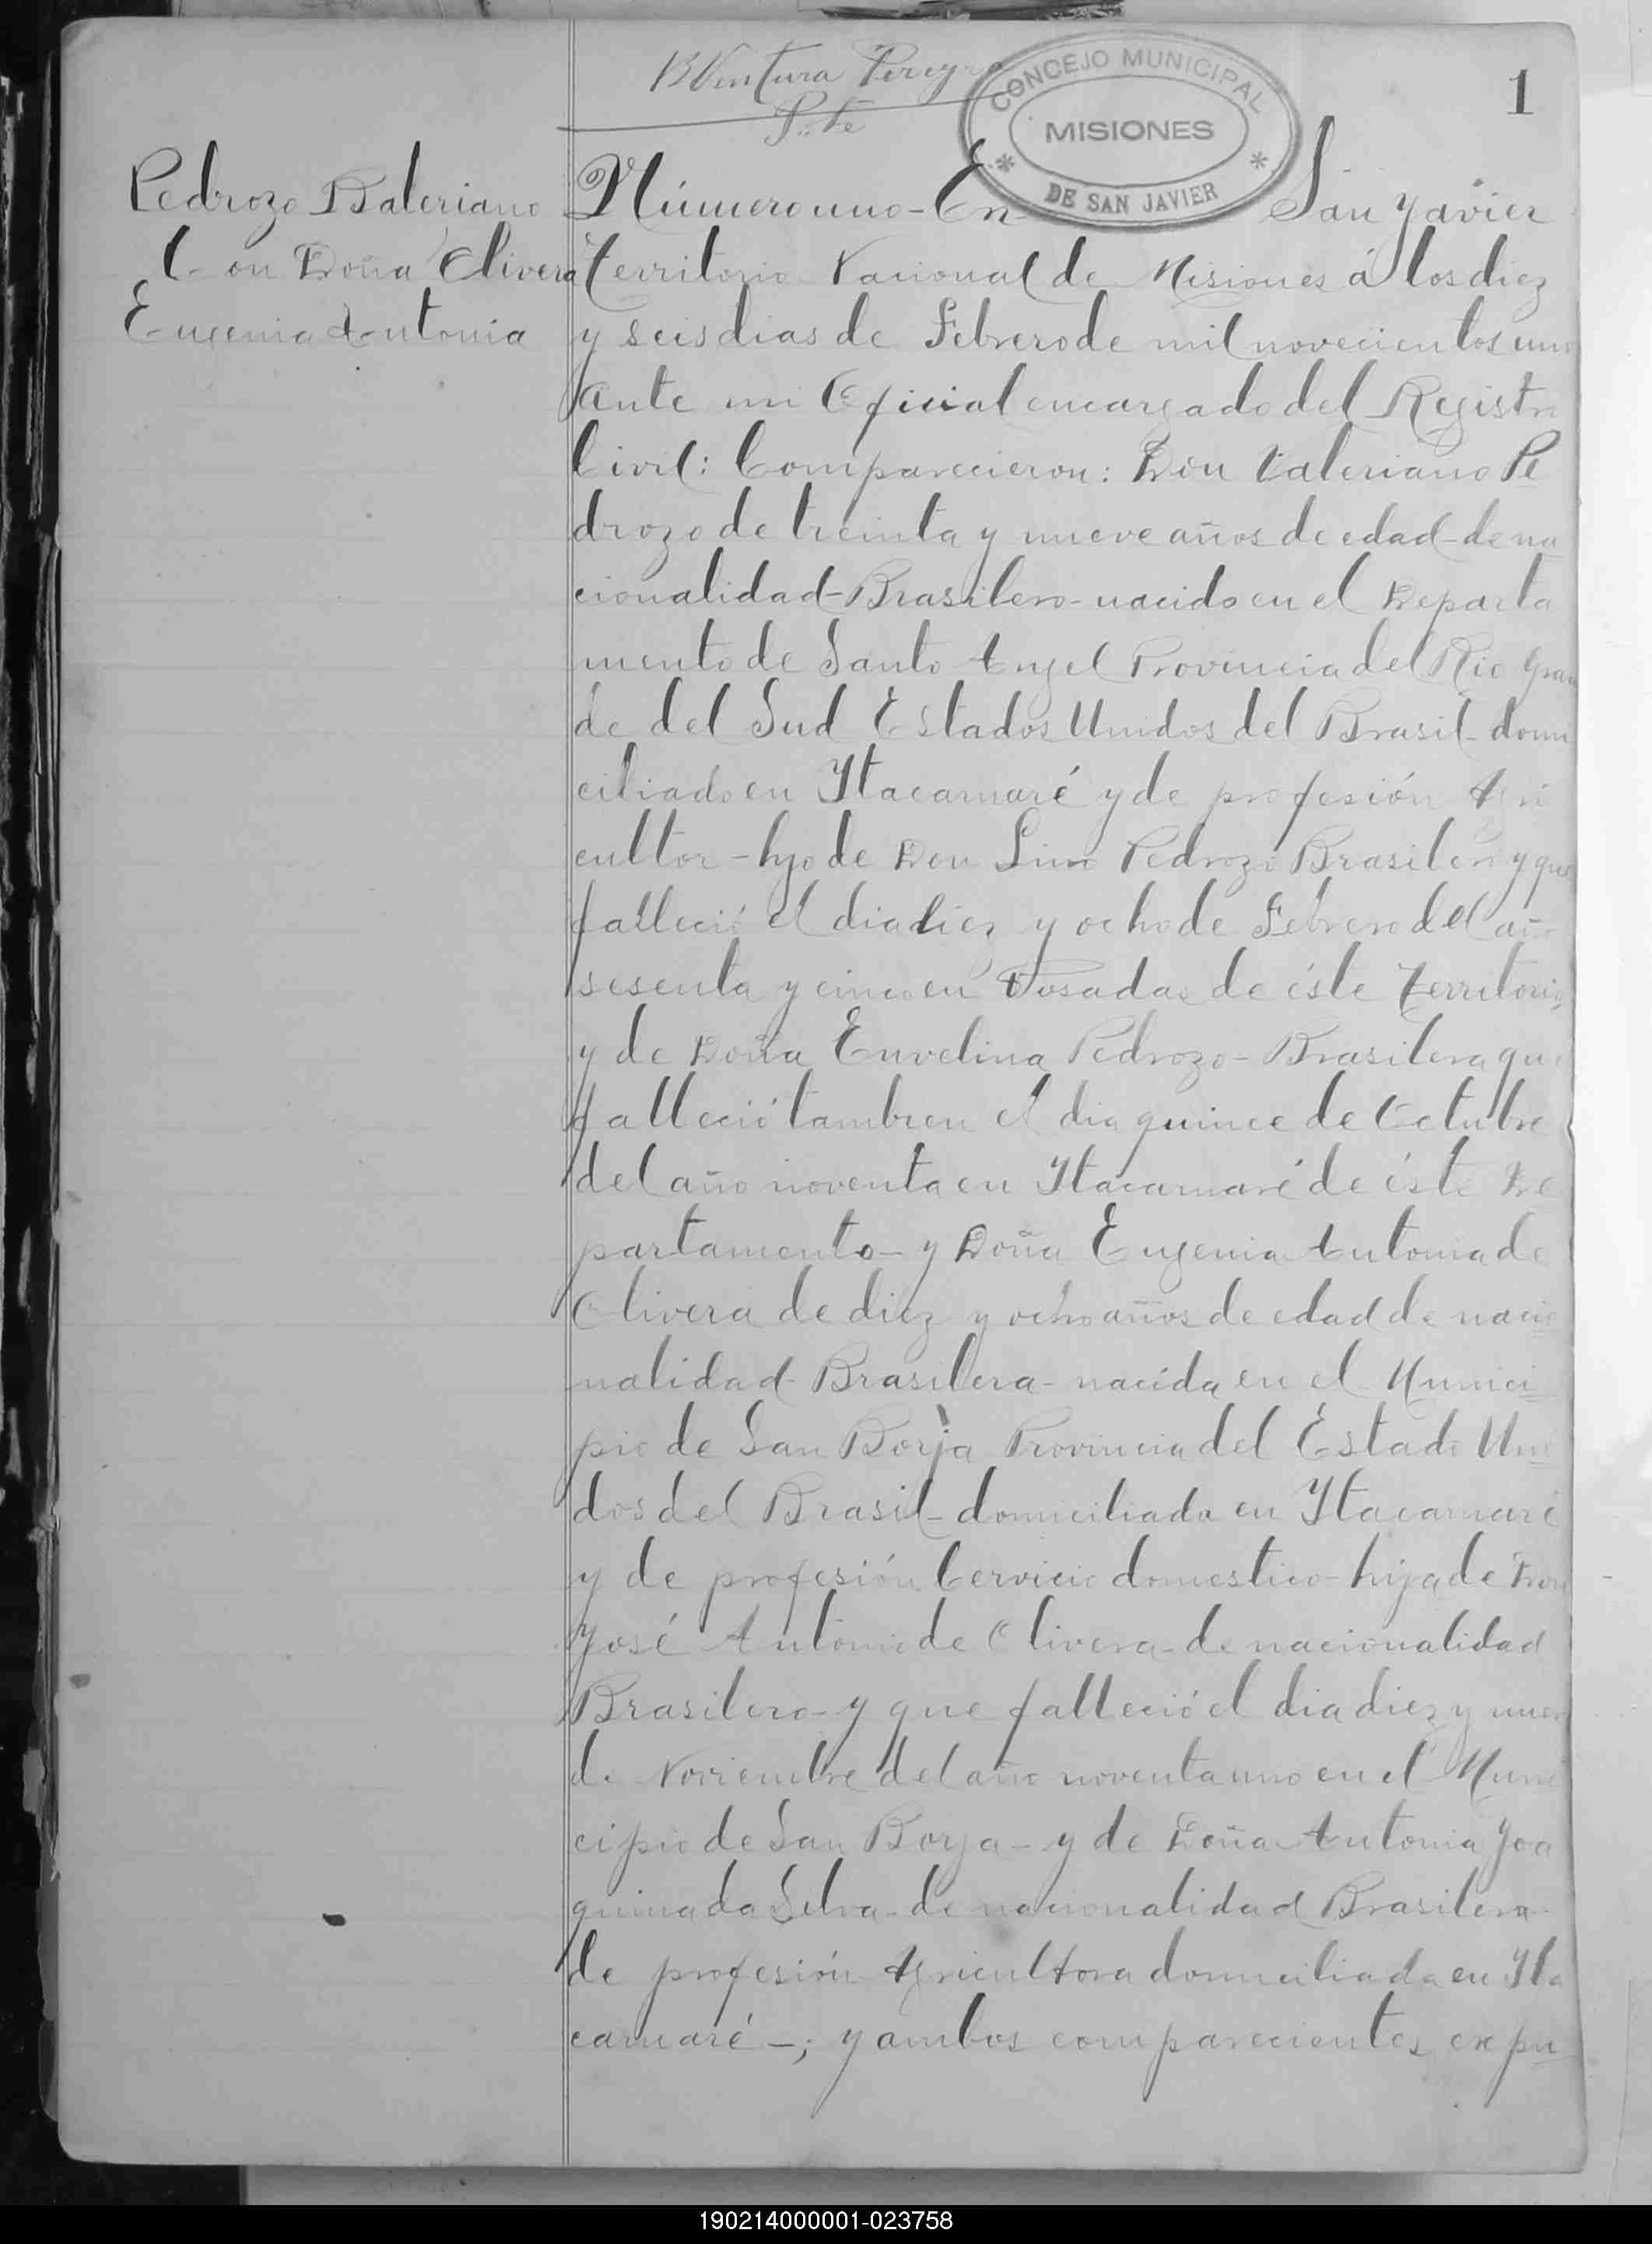 BVentura Pereyra
Pte
CONCEJO MUNICIPAL
MISIONES
DE SAN JAVIER
1
Pedrozo Baleriano
Con Doña Olivera
Eugenia Antonia
Número uno - En San Javier
Territorio Nacional de Misiones á los diez
y seis dias de Febrero de mil novecientos uno
ante mi Oficial encargado del Registro
Civil: Comparecieron: Don Valeriano Pe
drozo de treinta y nueve años de edad - de na
cionalidad - Brasilero - nacido en el Departa
mento de Santo Angel Provincia del Rio Gran
de del Sud Estados Unidos del Brasil - domi
ciliado en Ytacarnaré y de profesión Agri
cultor - hjo de Don Lino Pedrozo Brasilero y que
falleció el dia diez y ocho de Febrero del año
sesenta y cinco en Posadas de éste Territorio
y de Doña Envelina Pedrozo - Brasilera que
falleció tambien el dia quince de Octubre
del año noventa en Ytacarnaré de éste De
partamento - y Doña Eugenia Antonia de
Olivera de diez y ocho años de edad de nacio
nalidad - Brasilera - nacida en el Munici
pio de San Borja Provincia del Estado Uni
dos del Brasil - domiciliada en Ytacarnaré
y de profesión Cervicio domestico - hija de Don
José Antonio de Olivera - de nacionalidad
Brasilero - y que falleció el dia diez y nueve
de Noviembre del año noventa uno en el Muni
cipio de San Borja - y de Doña Antonia Joa
quina da Selva - de nacionalidad Brasilera -
de profesión Agricultora domiciliada en Yta
carnaré -; y ambos comparecientes expu
190214000001-023758